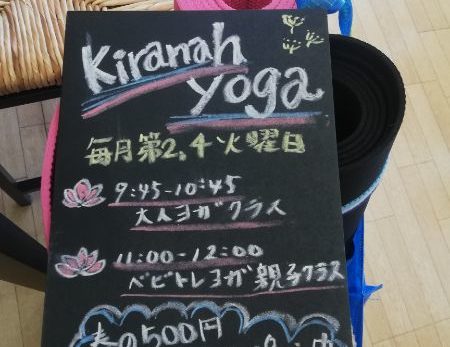 Kiranah
yoga
毎月第2,4火曜日
9:45-10:45
大人ヨガクラス
11:00-12:00
ベビトレヨガ親子クラス
500円